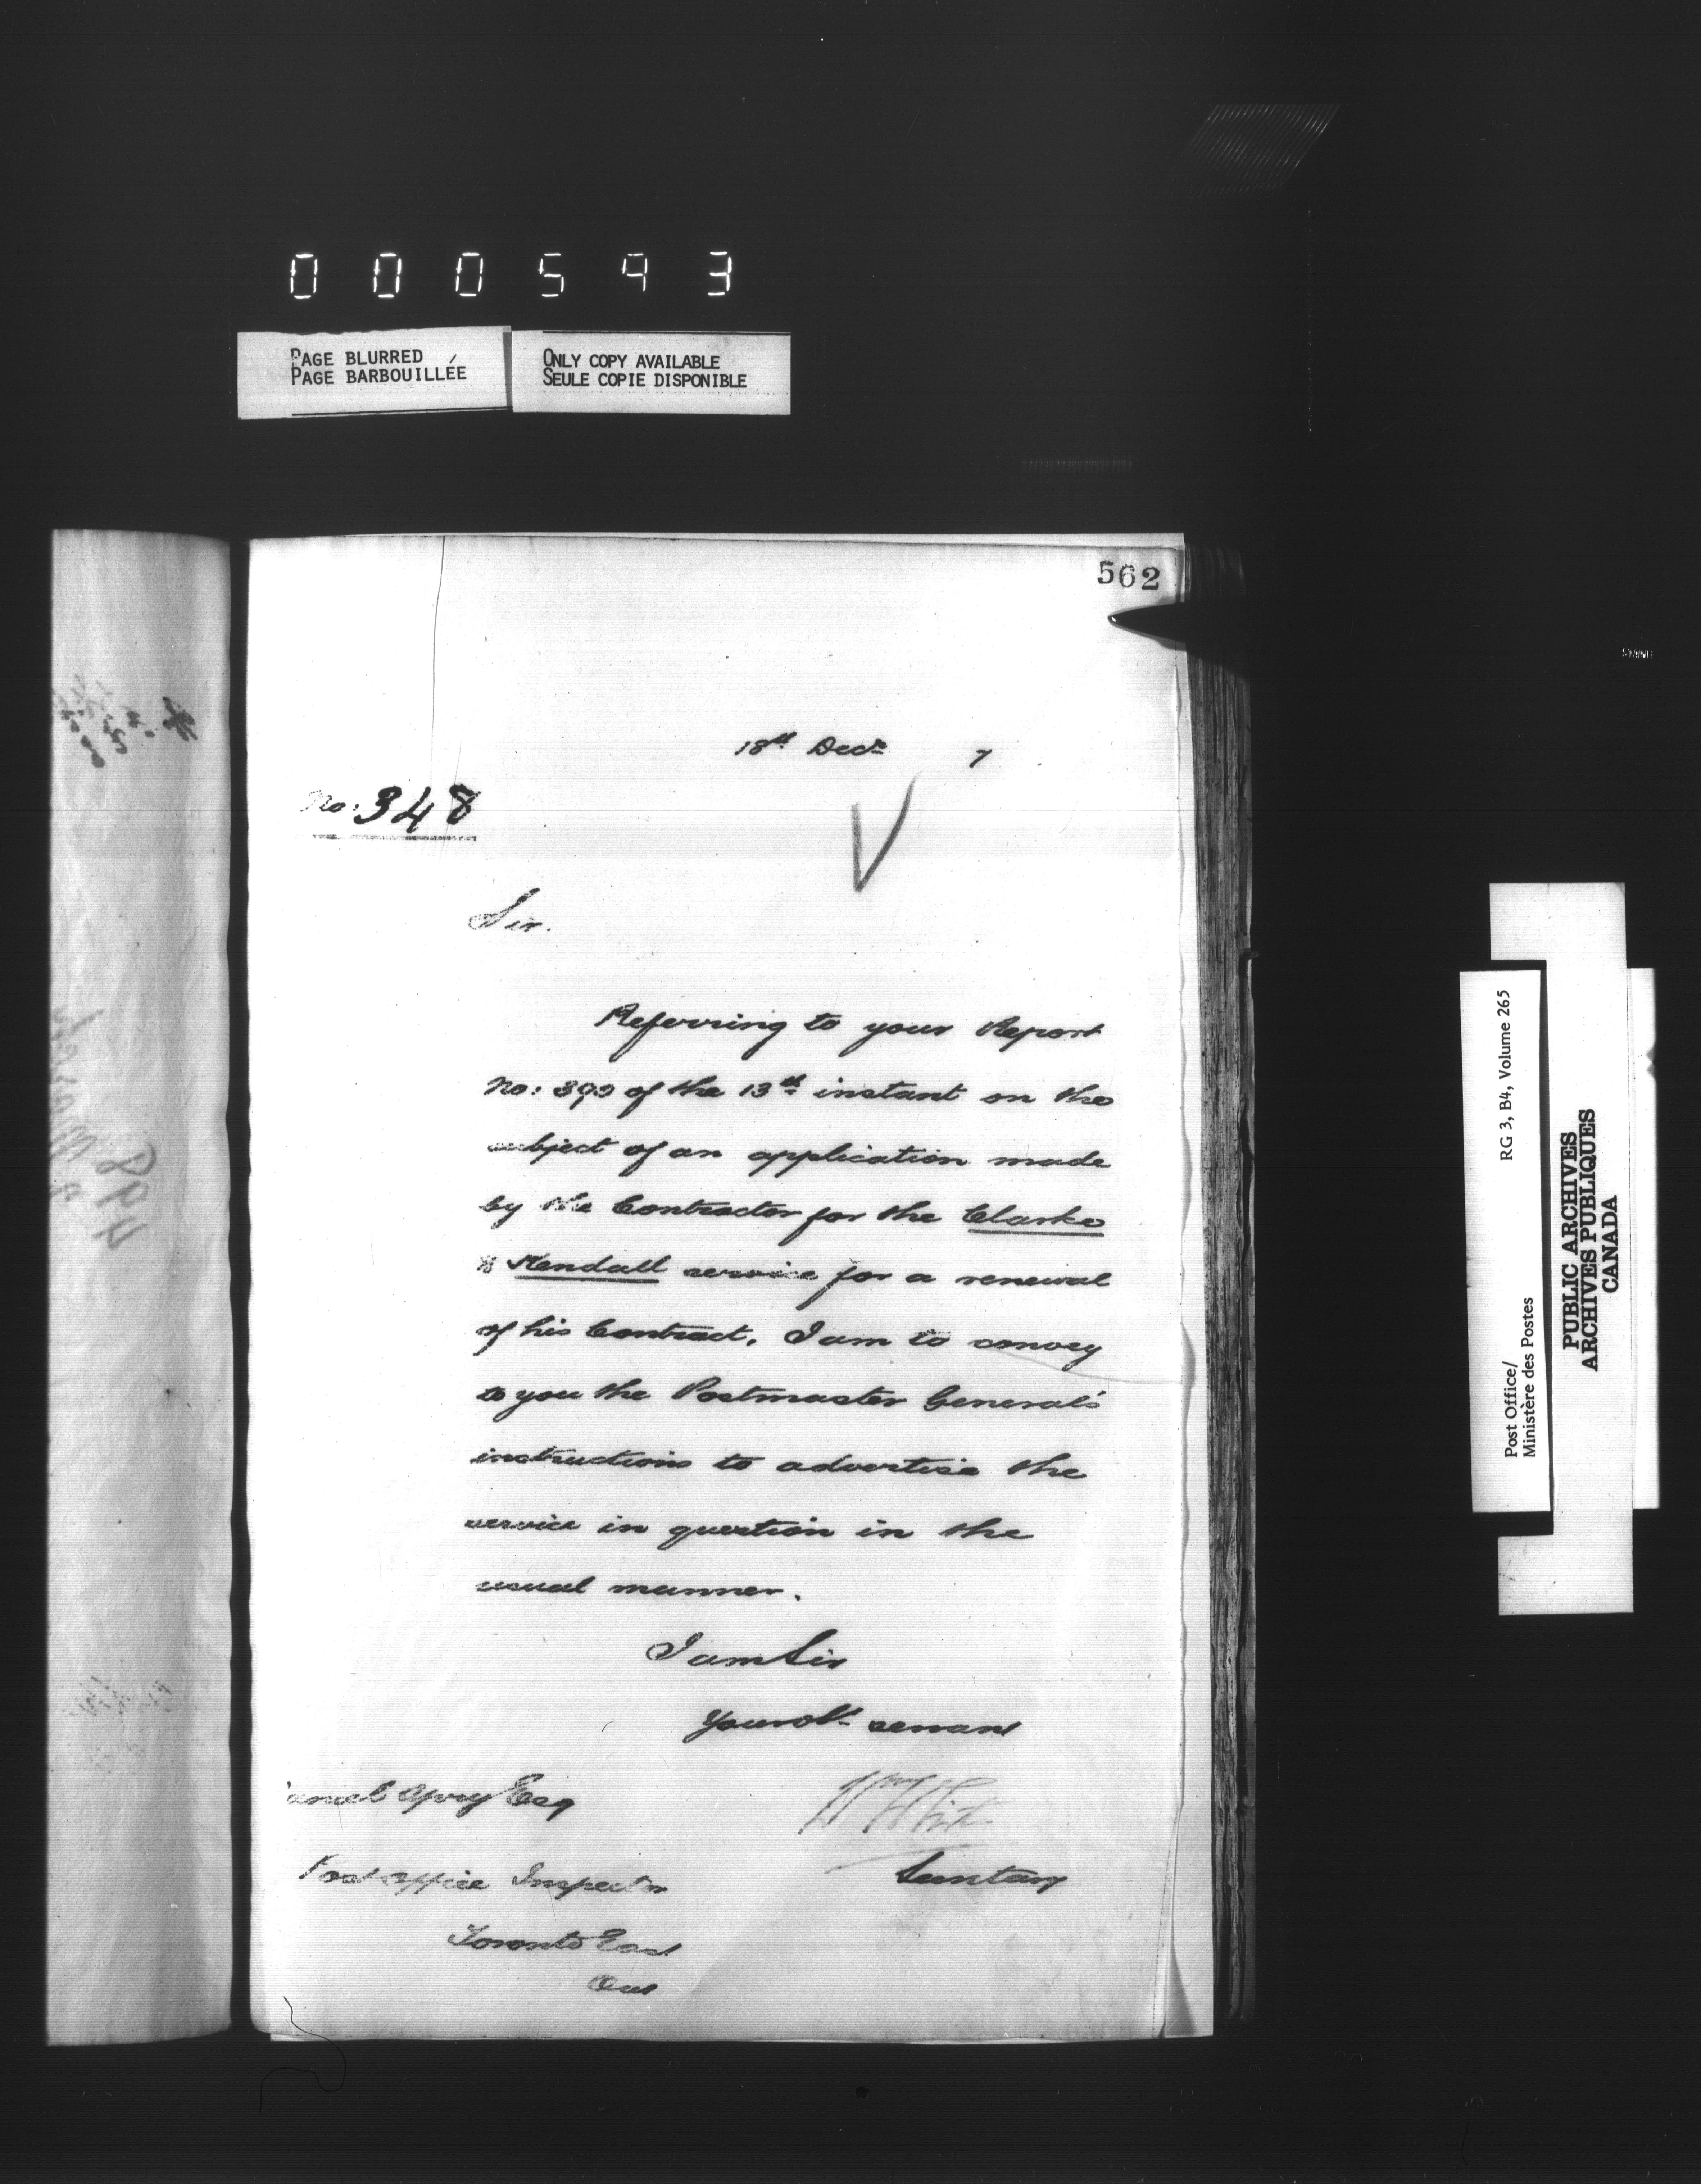 000593
PAGE BLURRED
PAGE BARBOUILLÉE
ONLY COPY AVAILABLE
SEULE COPIE DISPONIBLE
562
18th Decr 7
No: 348
Sir.
Referring to your Report
No: of the 13th instant on the
subject of an application made
by the Contractor for the Clarke
& Kendall service for a renewal
of his Contract, I am to convey
to you the Postmaster General's
instructions to advertise the
service in question in the
usual manner.
I am Sir
Your obt servant
Wm White
Secretary
Esq
Post Office Inspector
Toronto East
Ont
RG 3, B4, Volume 265
Post Office/
Ministère des Postes
PUBLIC ARCHIVES
ARCHIVES PUBLIQUES
CANADA